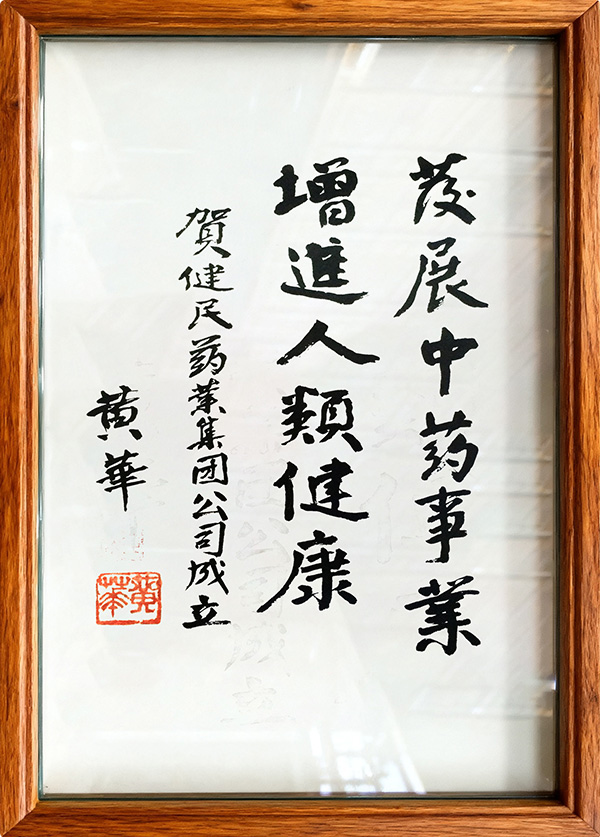 发展中药事业
增進人類健康
賀健民药業集团公司成立
黄華
黄華